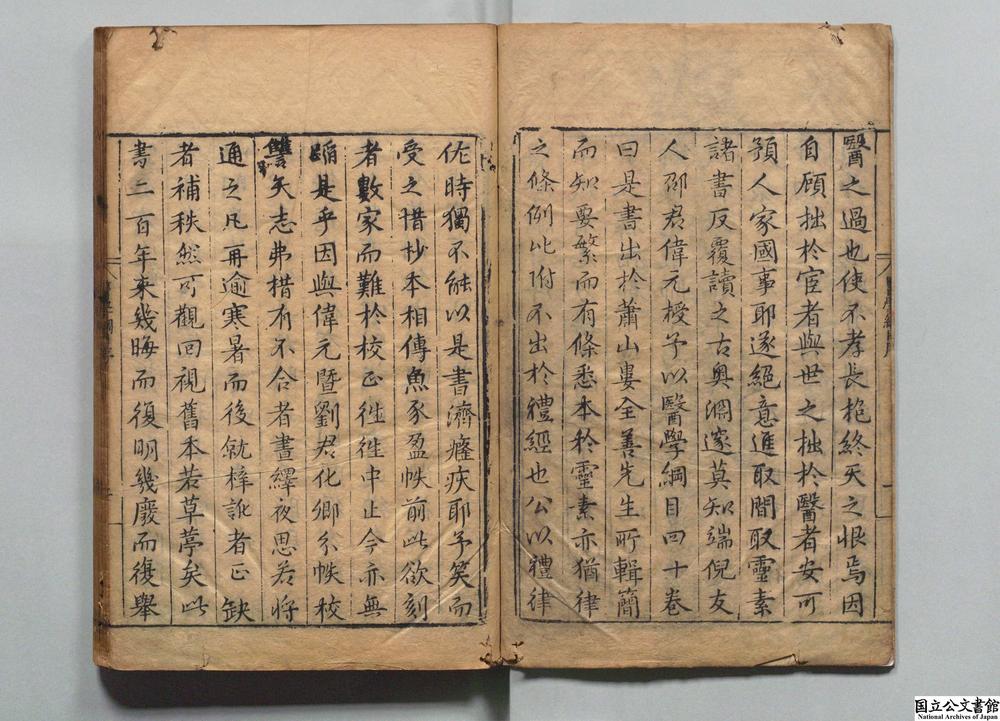 醫之過也使不孝長抱終天之恨焉因
自顧拙於宦者與世之拙於醫者安可
預人家國事耶遂絕意進取間取靈素
諸書反覆讀之古奧淵邃莫知端倪友
人邵君偉元授予以醫學綱目四十卷
曰是書出於蕭山婁全善先生所輯簡
而知要繁而有條悉本於靈素亦猶律
之條例比附不出於禮經也公以禮律
佐時獨不能以是書濟癃疾耶予笑而
受之惜抄本相傳魚豕盈帙前此欲刻
者數家而難於校正徃徃中止今亦無
蹈是乎因與偉元暨劉君化卿分帙校
讐矢志弗措有不合者晝繹夜思若將
通之凡再逾寒暑而後就梓訛者正缺
者補秩然可觀回視舊本若草葶矣此
書二百年來幾晦而復明幾廢而復舉
国立公文書館
National Archives of Japan